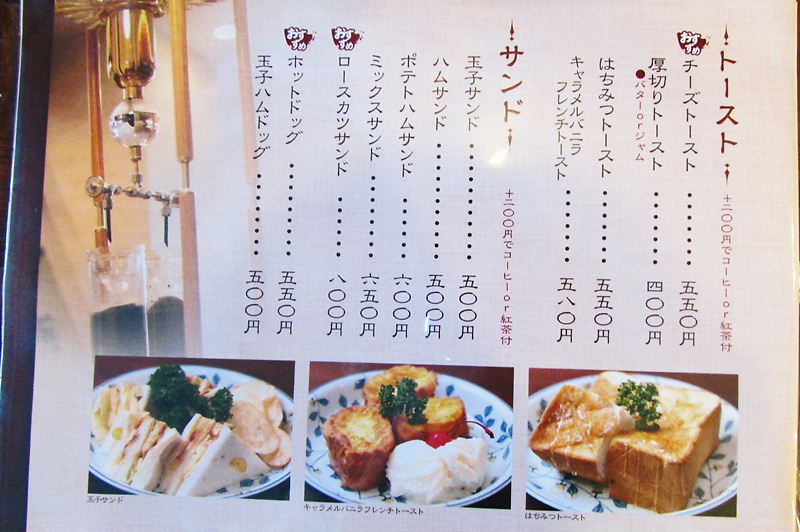 トースト
+二〇〇円でコーヒーor紅茶付
おすすめ
チーズトースト………五五〇円
厚切りトースト………四〇〇円
●バターorジャム
はちみつトースト………五五〇円
キャラメルバニラ
フレンチトースト………五八〇円
サンド
+二〇〇円でコーヒーor紅茶付
玉子サンド………五〇〇円
ハムサンド………五〇〇円
ポテトハムサンド………六〇〇円
ミックスサンド………六五〇円
おすすめ
ロースカツサンド………八〇〇円
おすすめ
ホットドッグ………五五〇円
玉子ハムドッグ………五〇〇円
玉子サンド
キャラメルバニラフレンチトースト
はちみつトースト